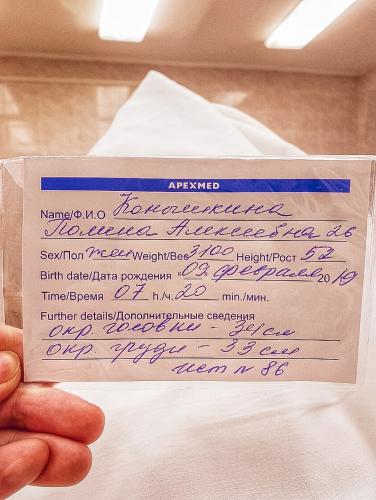 APEXMED
Name/Ф.И.О Коньшкина
Полина Алексеевна 26
Sex/Пол жен Weight/Вес 3100 Height/Рост 52
Birth date/Дата рождения "09 февраля 2019
Time/Время 07 h./ч. 20 min./мин.
Further details/Дополнительные сведения
окр. головки - 34 см
окр. груди - 33 см
ист N 86